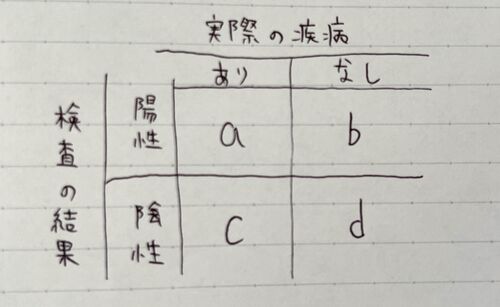 実際の疾病
あり なし
検査の結果
陽性 a b
陰性 c d